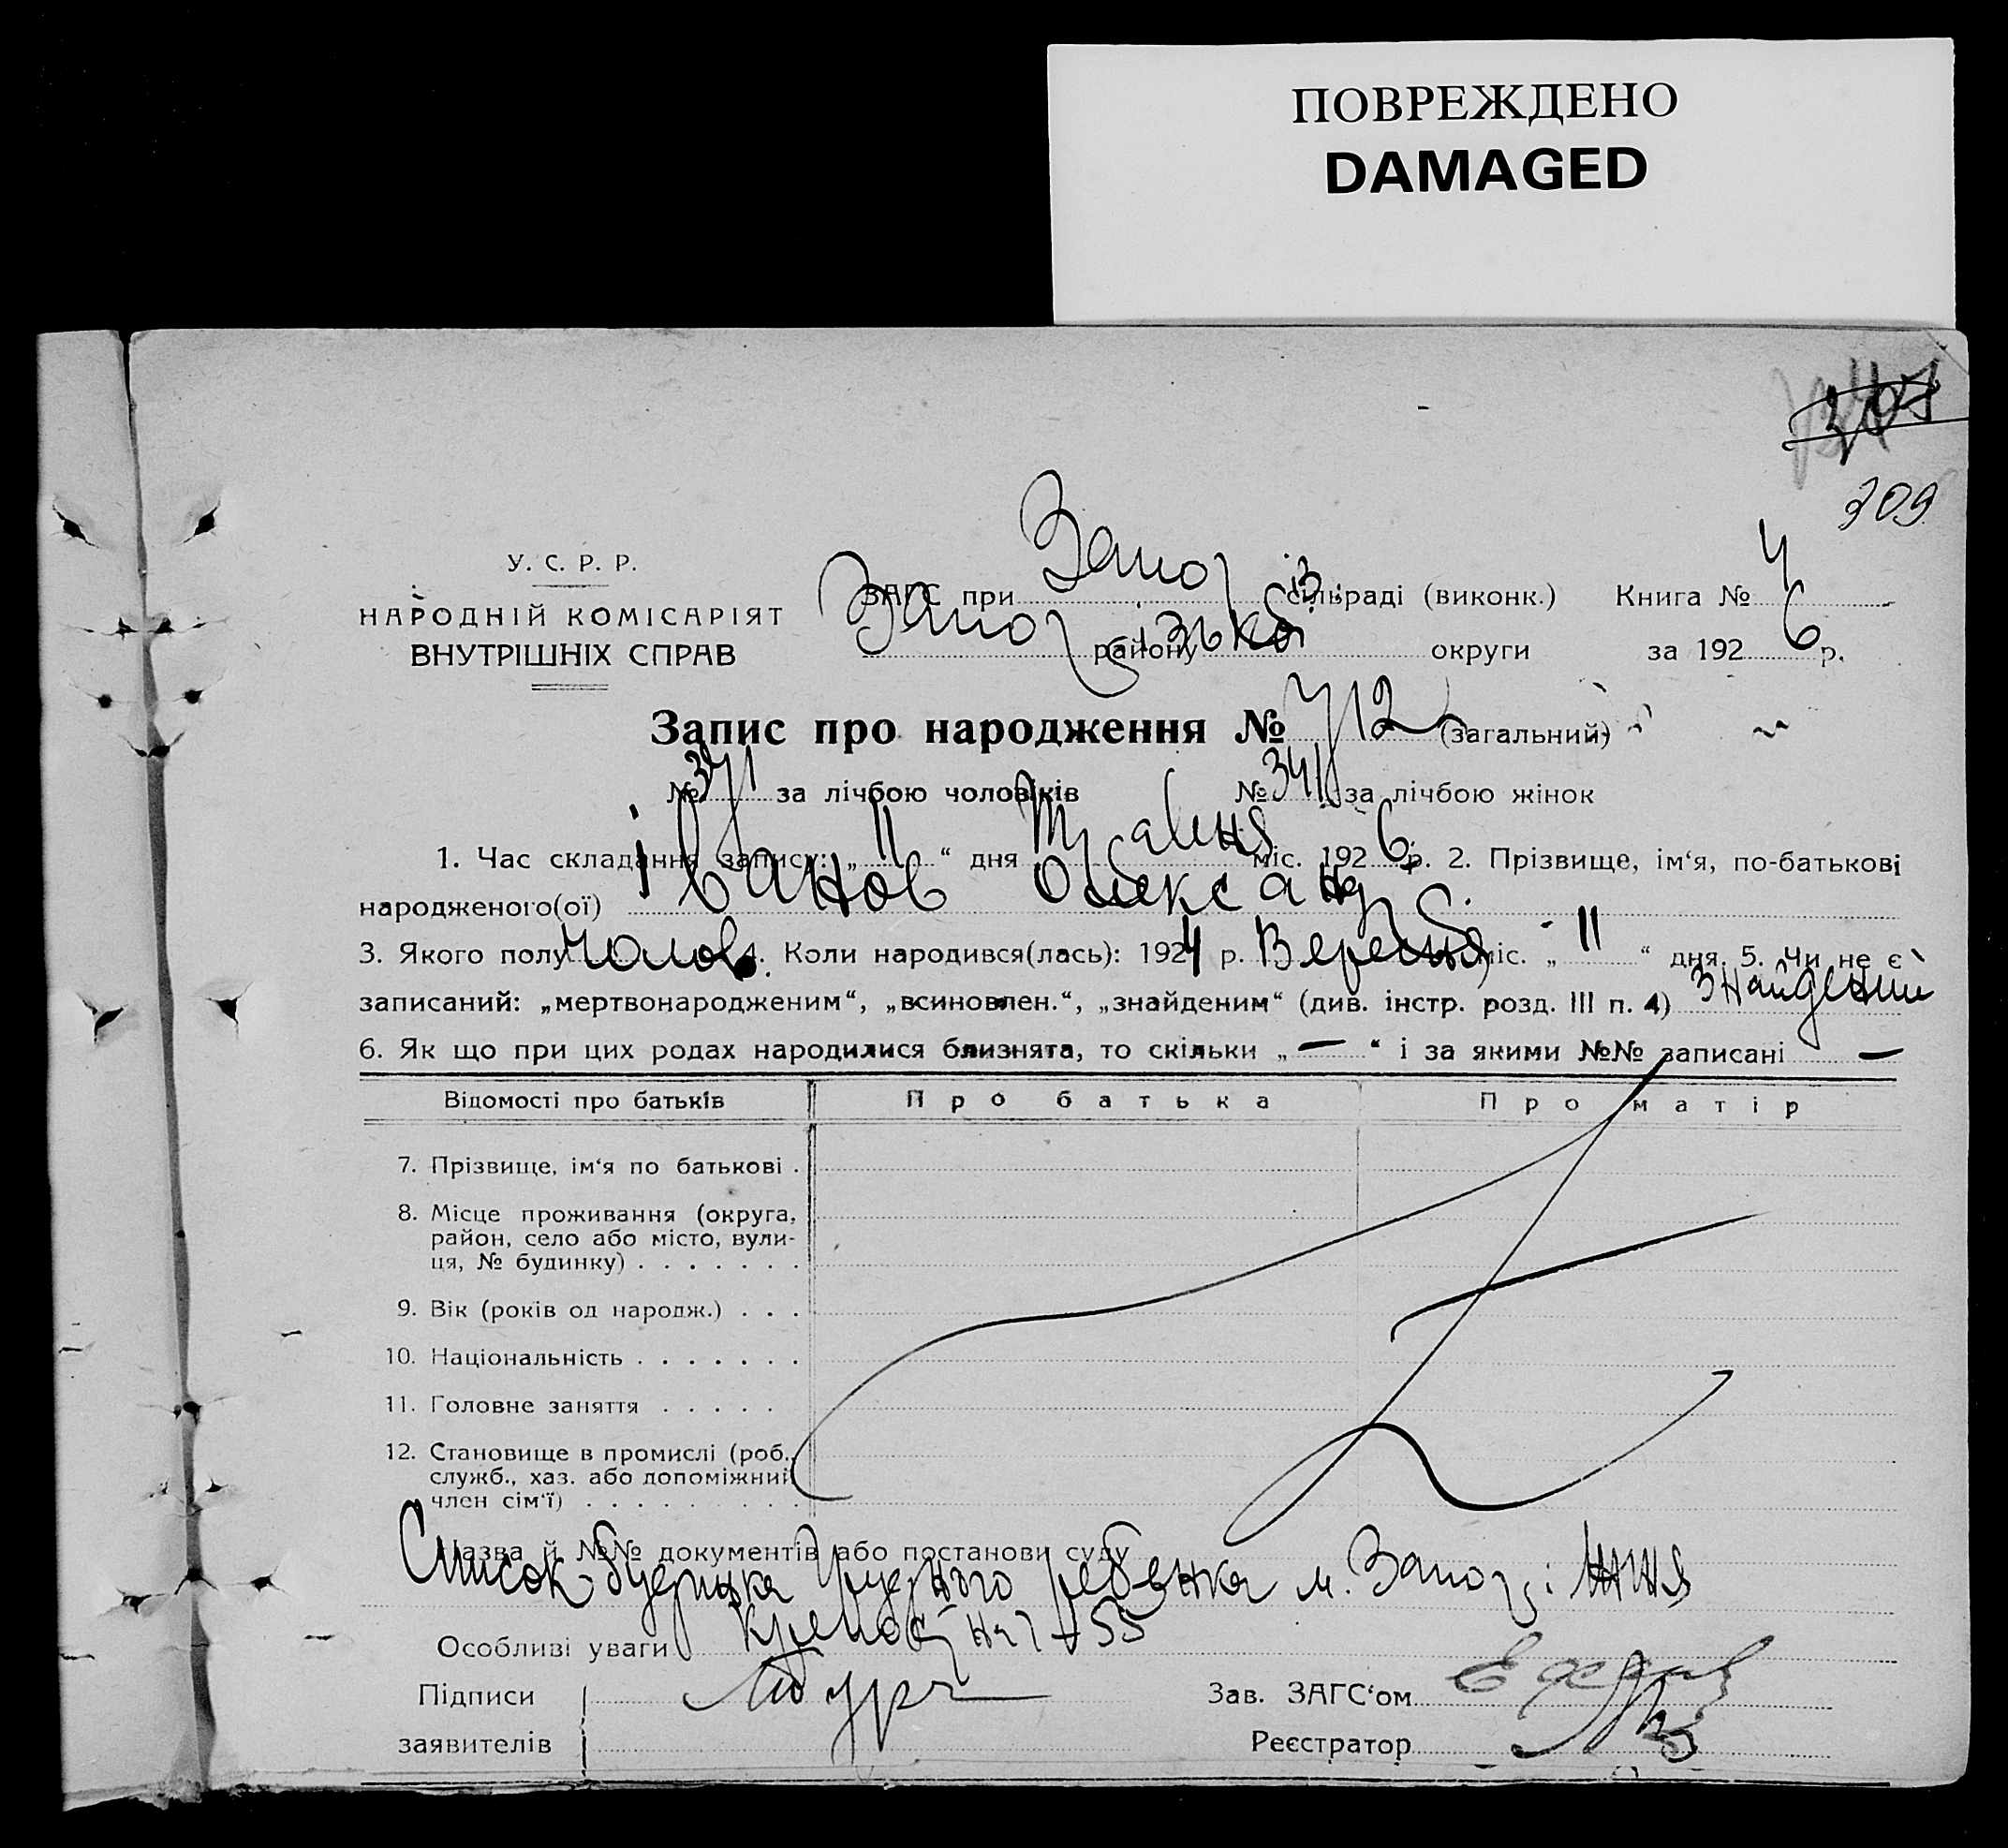 ПОВРЕЖДЕНО
DAMAGED
309
У. С. Р. Р.
НАРОДНІЙ КОМІСАРІЯТ
ВНУТРІШНІХ СПРАВ
ЗАГС при Запоріз. сільраді (виконк.) Книга № 4
району округи за 1926 р.
Запис про народження № 712 (загальний)
№ 371 за лічбою чоловіків № 341 за лічбою жінок
1. Час складання запису: „11“ дня Травня міс. 1926 р. 2. Прізвище, ім‘я, по-батькові
народженого(ої) Іванов Олександр
3. Якого полу Чолов. 4. Коли народився(лась): 1924 р. Вересня міс. „11“ дня. 5. Чи не є
записаний: „мертвонародженим“, „всиновлен.“, „знайденим“ (див. інстр. розд. III п. 4) Знайдений
6. Як що при цих родах народилися близнята, то скільки „—“ і за якими №№ записані —
Відомості про батьків Про батька Про матір
7. Прізвище, ім‘я по батькові .
8. Місце проживання (округа,
район, село або місто, вули-
ця, № будинку) . . . . . . .
9. Вік (років од народж.) . . .
10. Національність . . . . . . .
11. Головне заняття . . . . .
12. Становище в промислі (роб.,
служб., хаз. або допоміжний
член сім‘ї) . . . . . . . . .
Назва й №№ документів або постанови суду
Список будинка грудного ребенка м. Запоріжжя
Особливі уваги
Підписи Зав. ЗАГС‘ом
заявителів Реєстратор